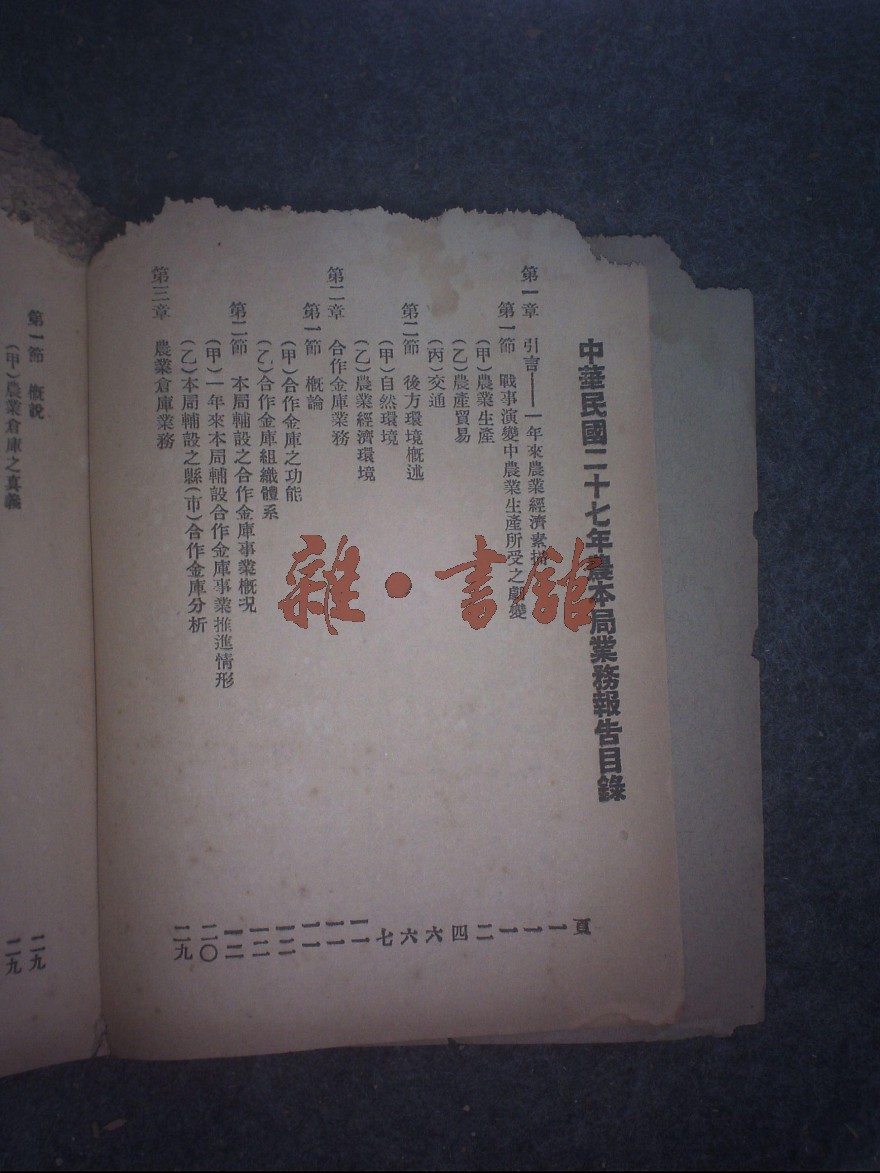 中華民國二十七年農本局業務報告目錄
頁
第一章 引言——一年來農業經濟素描 一
第一節 戰事演變中農業生產所受之劇變 一
(甲)農業生產 一
(乙)農產貿易 二
(丙)交通 四
第二節 後方環境概述 六
(甲)自然環境 六
(乙)農業經濟環境 七
第二章 合作金庫業務 一一
第一節 概論 一一
(甲)合作金庫之功能 一一
(乙)合作金庫組織體系 一二
第二節 本局輔設之合作金庫事業概況 一二
(甲)一年來本局輔設合作金庫事業推進情形 一二
(乙)本局輔設之縣(市)合作金庫分析 二〇
第三章 農業倉庫業務 二九
第一節 概說 二九
(甲)農業倉庫之真義 二九
雜·書館